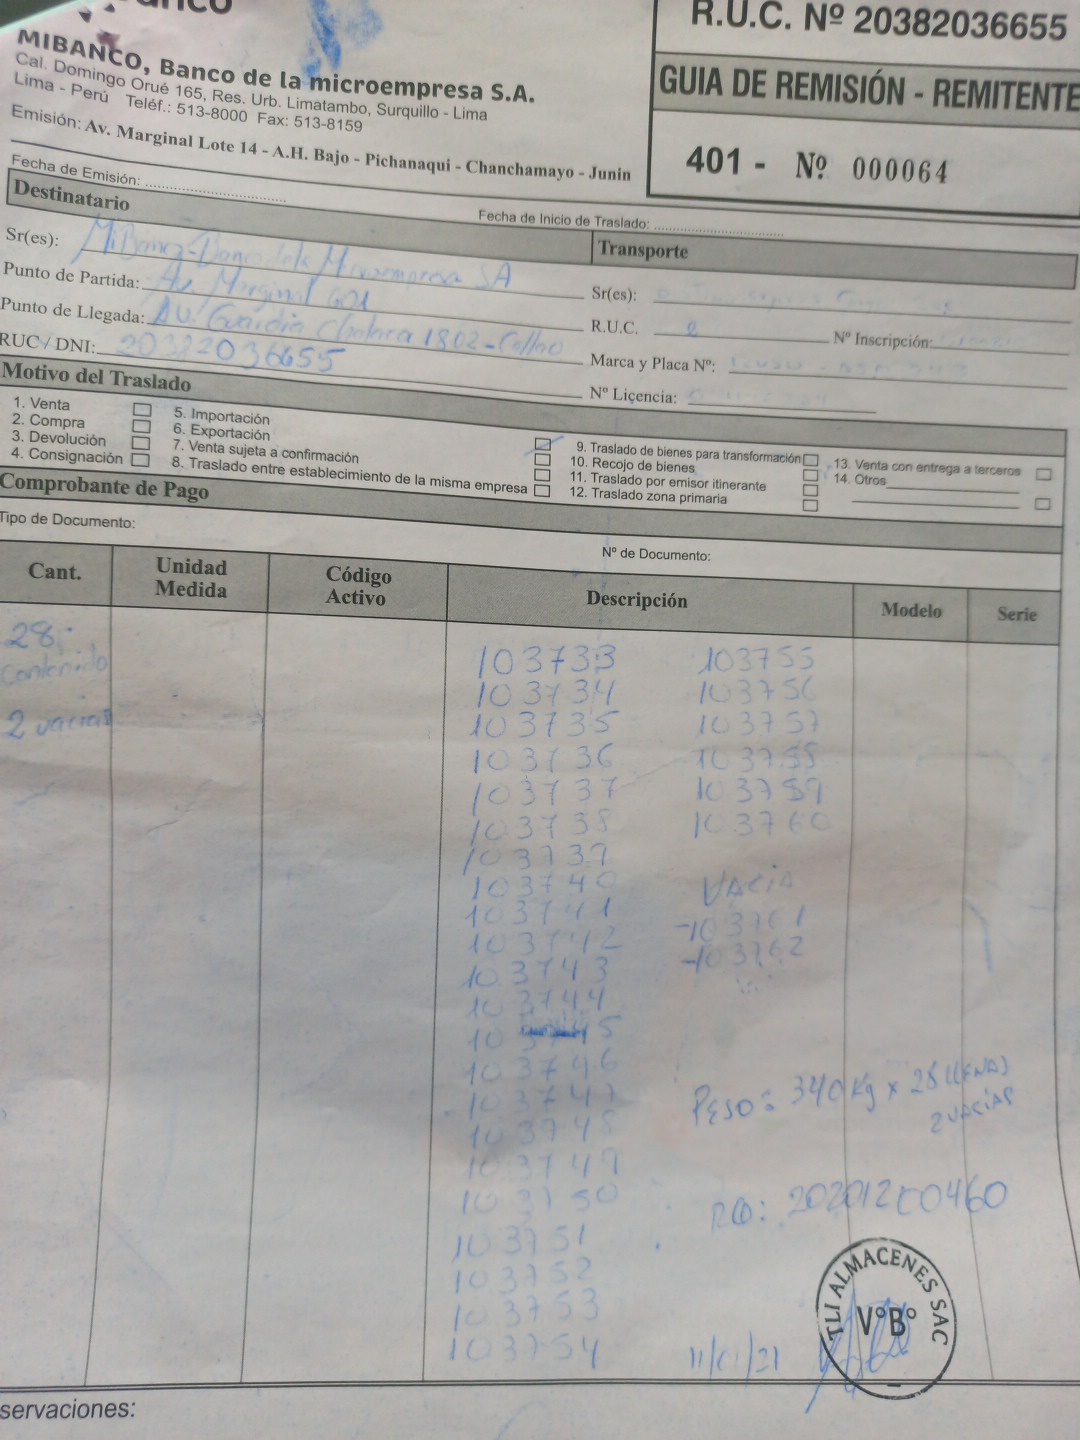 R.U.C. Nº 20382036655
MIBANCO, Banco de la microempresa S.A.
Cal. Domingo Orué 165, Res. Urb. Limatambo, Surquillo - Lima
Lima - Perú Teléf.: 513-8000 Fax: 513-8159
Emisión: Av. Marginal Lote 14 - A.H. Bajo - Pichanaqui - Chanchamayo - Junin
GUIA DE REMISIÓN - REMITENTE
401 - Nº 000064
Fecha de Emisión:
Fecha de Inicio de Traslado:
Destinatario
Sr(es): MiBanco-Banco de la Microempresa SA
Punto de Partida: Av. Marginal 601
Punto de Llegada: AV. Guardia Chalaca 1802-Callao
RUC / DNI: 20382036655
Transporte
Sr(es):
R.U.C.
Nº Inscripción:
Marca y Placa Nº:
Nº Liçencia:
Motivo del Traslado
1. Venta
2. Compra
3. Devolución
4. Consignación
5. Importación
6. Exportación
7. Venta sujeta a confirmación
8. Traslado entre establecimiento de la misma empresa
9. Traslado de bienes para transformación
10. Recojo de bienes
11. Traslado por emisor itinerante
12. Traslado zona primaria
13. Venta con entrega a terceros
14. Otros
Comprobante de Pago
Tipo de Documento:
Nº de Documento:
Cant.
Unidad Medida
Código Activo
Descripción
Modelo
Serie
28
contenido
2 vacias
103733
103734
103735
103736
103737
103738
103739
103740
103741
103742
103743
103744
103745
103746
103747
103748
103749
103750
103751
103752
103753
103754
103755
103756
103757
103758
103759
103760
VACIA
-103761
-103762
PESO: 340 Kg x 28 LLENAS
2 VACIAS
RQ: 202012C0460
11/01/21
TLI ALMACENES SAC
VºBº
servaciones: